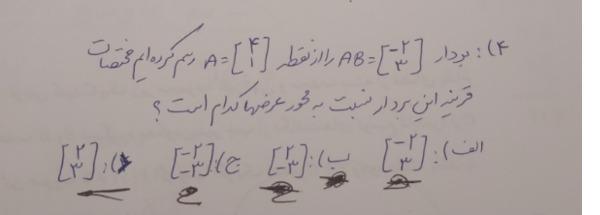 ۴): بردار AB=[-۲ ۳] را از نقطه A=[۴ ۱] رسم کرده ایم مختصات
قرینه این بردار نسبت به محور عرضها کدام است؟
الف): [-۲ ۳] ب): [۲ -۳] ج): [-۲ -۳] د): [۲ ۳]